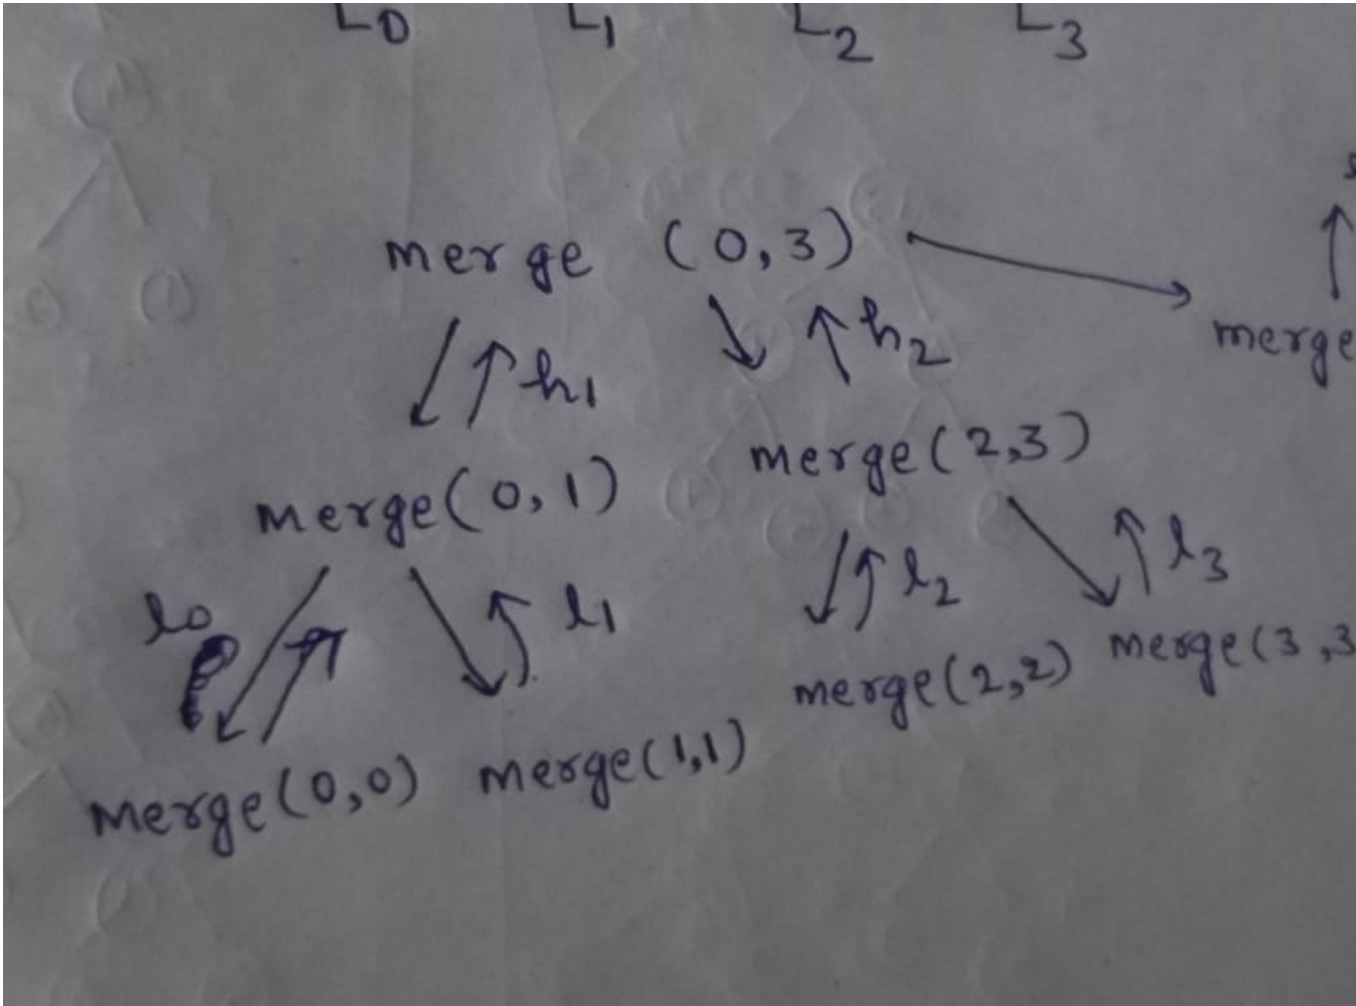 L0 L1 L2 L3
merge (0,3)
h1 h2
merge
merge(0,1) merge(2,3)
l0 l1 l2 l3
merge(0,0) merge(1,1) merge(2,2) merge(3,3